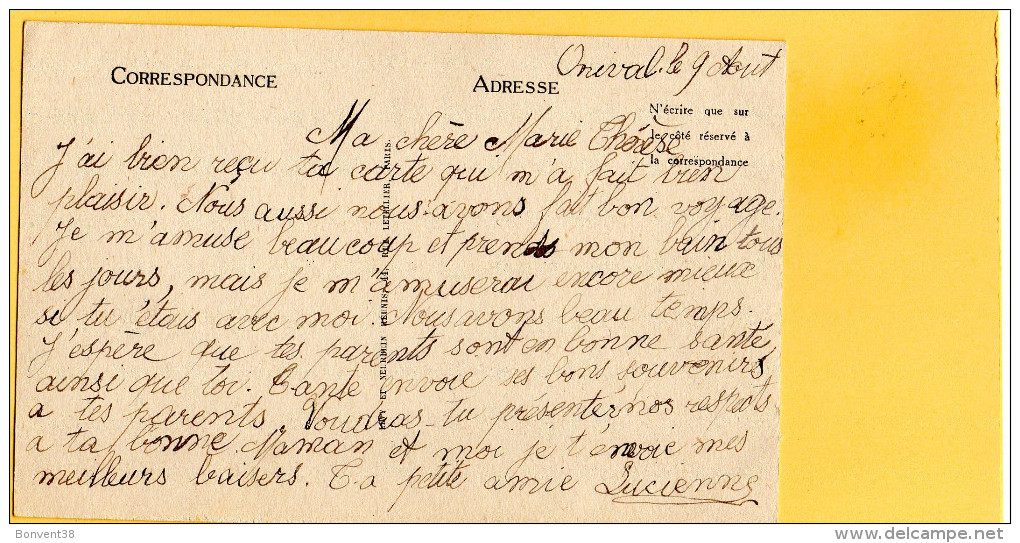 Onival. le 9 Août
CORRESPONDANCE
ADRESSE
N'écrire que sur
le côté réservé à
la correspondance
Ma chère Marie Thérèse
J'ai bien reçu ta carte qui m'a fait bien
plaisir. Nous aussi nous avons fait bon voyage.
Je m'amuse beaucoup et prends mon bain tous
les jours, mais je m'amuserai encore mieux
si tu étais avec moi. Nous avons beau temps.
J'espère que tes parents sont en bonne santé
ainsi que toi. Tante envoie ses bons souvenirs
a tes parents. Voudras-tu présenter nos respects
a ta bonne Maman et moi je t'envoie mes
meilleurs baisers. Ta petite amie Lucienne
NEURDEIN RÉUNIS, 44, RUE LETELLIER, PARIS.
Bonvent38
delcampe.net